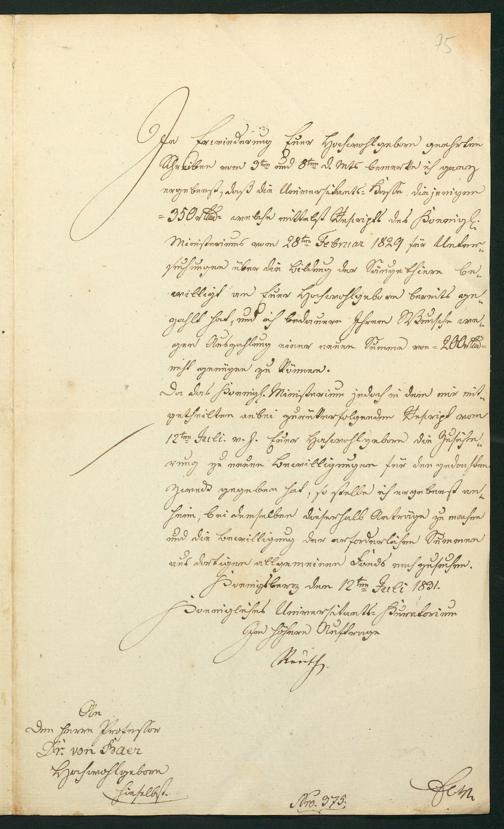 75
In Erwiederung Euer Hochwohlgeboren geehrten
Schreiben vom 3ten und 8ten d. Mts bemerke ich ganz
ergebenst, daß die Universitaets-Kasse diejenigen
=350 rthlr= welche mittelst Rescripts des Koenigl.
Ministeriums vom 28ten Februar 1829 für Unter-
suchungen über die Bildung der Säugethiere be-
willigt an Euer Hochwohlgeboren bereits ge-
zahlt hat, und ich bedaure Ihrem Wunsche we-
gen Auszahlung einer neuen Summe von =200 rthlr=
nicht genügen zu können.
Da das Koenigl. Ministerium jedoch in dem mir mit-
getheilten anbei zurückerfolgenden Rescript vom
12ten Juli v. J. Euer Hochwohlgeboren die Zusiche-
rung zu neuen Bewilligungen für den gedachten
Zweck gegeben hat, so stelle ich ergebenst an-
heim, bei demselben dieserhalb Anträge zu machen
und die Bewilligung der erforderlichen Summen
aus dortigen allgemeinen Fonds nachzusuchen.
Koenigsberg den 12ten Juli 1831.
Koenigliches Universitaets-Kuratorium
Im höhern Auftrage
Reusch.
An
den Herrn Professor
Dr. von Baer
Hochwohlgeboren
hieselbst.
Nro. 375.